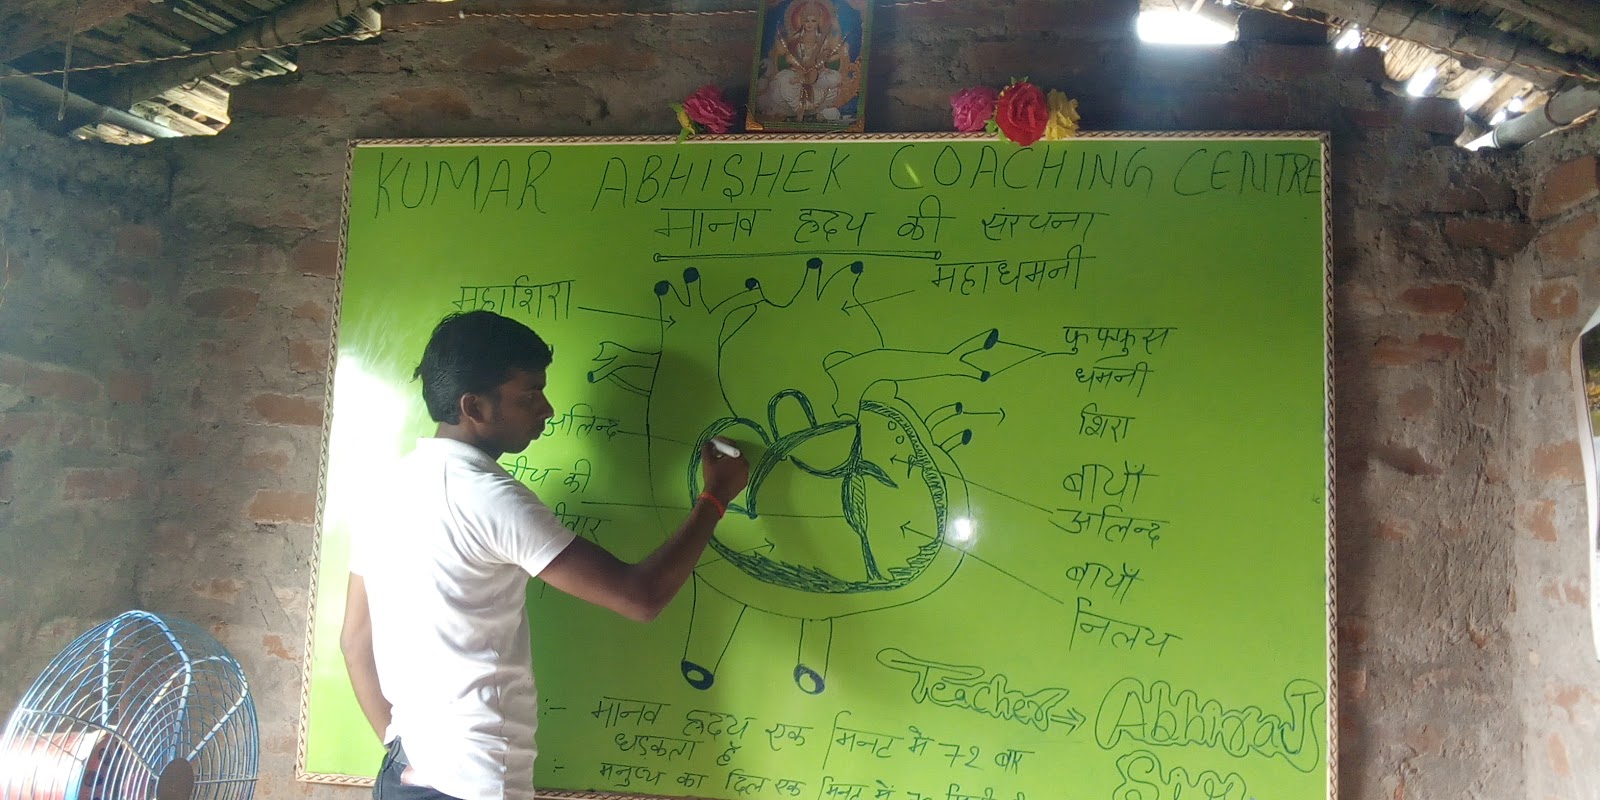 KUMAR ABHISHEK COACHING CENTRE
मानव हृदय की संरचना
महाशिरा
महाधमनी
फुफ्फुस
धमनी
अलिन्द
शिरा
बीच की
दीवार
बायाँ
अलिन्द
बायाँ
निलय
Teacher → Abhiraj
Sir
:- मानव हृदय एक मिनट में 72 बार
धड़कता है
:- मनुष्य का दिल एक मिनट में 70